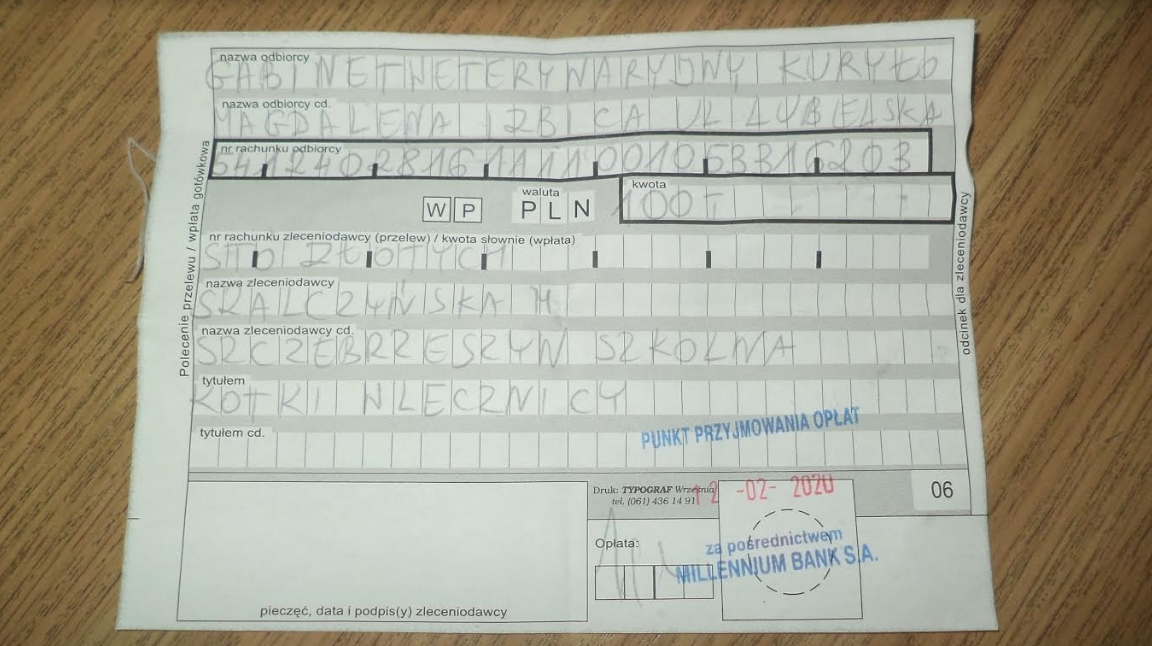 nazwa odbiorcy
GABINET WETERYNARYJNY KURYŁO
nazwa odbiorcy cd.
MAGDALENA IZBICA UL LUBELSKA
nr rachunku odbiorcy
54124028161111001063316203
W P
waluta
PLN
kwota
100
nr rachunku zleceniodawcy (przelew) / kwota słownie (wpłata)
STO ZŁOTYCH
nazwa zleceniodawcy
SKALCZYŃSKA M
nazwa zleceniodawcy cd.
SZCZEBRZESZYN SZKOLNA
tytułem
KOTKI W LECZNICY
tytułem cd.
PUNKT PRZYJMOWANIA OPŁAT
Polecenie przelewu / wpłata gotówkowa
odcinek dla zleceniodawcy
Druk: TYPOGRAF Września
tel. (061) 436 14 91
12 -02- 2020
06
Opłata:
za pośrednictwem
MILLENNIUM BANK S.A.
pieczęć, data i podpis(y) zleceniodawcy